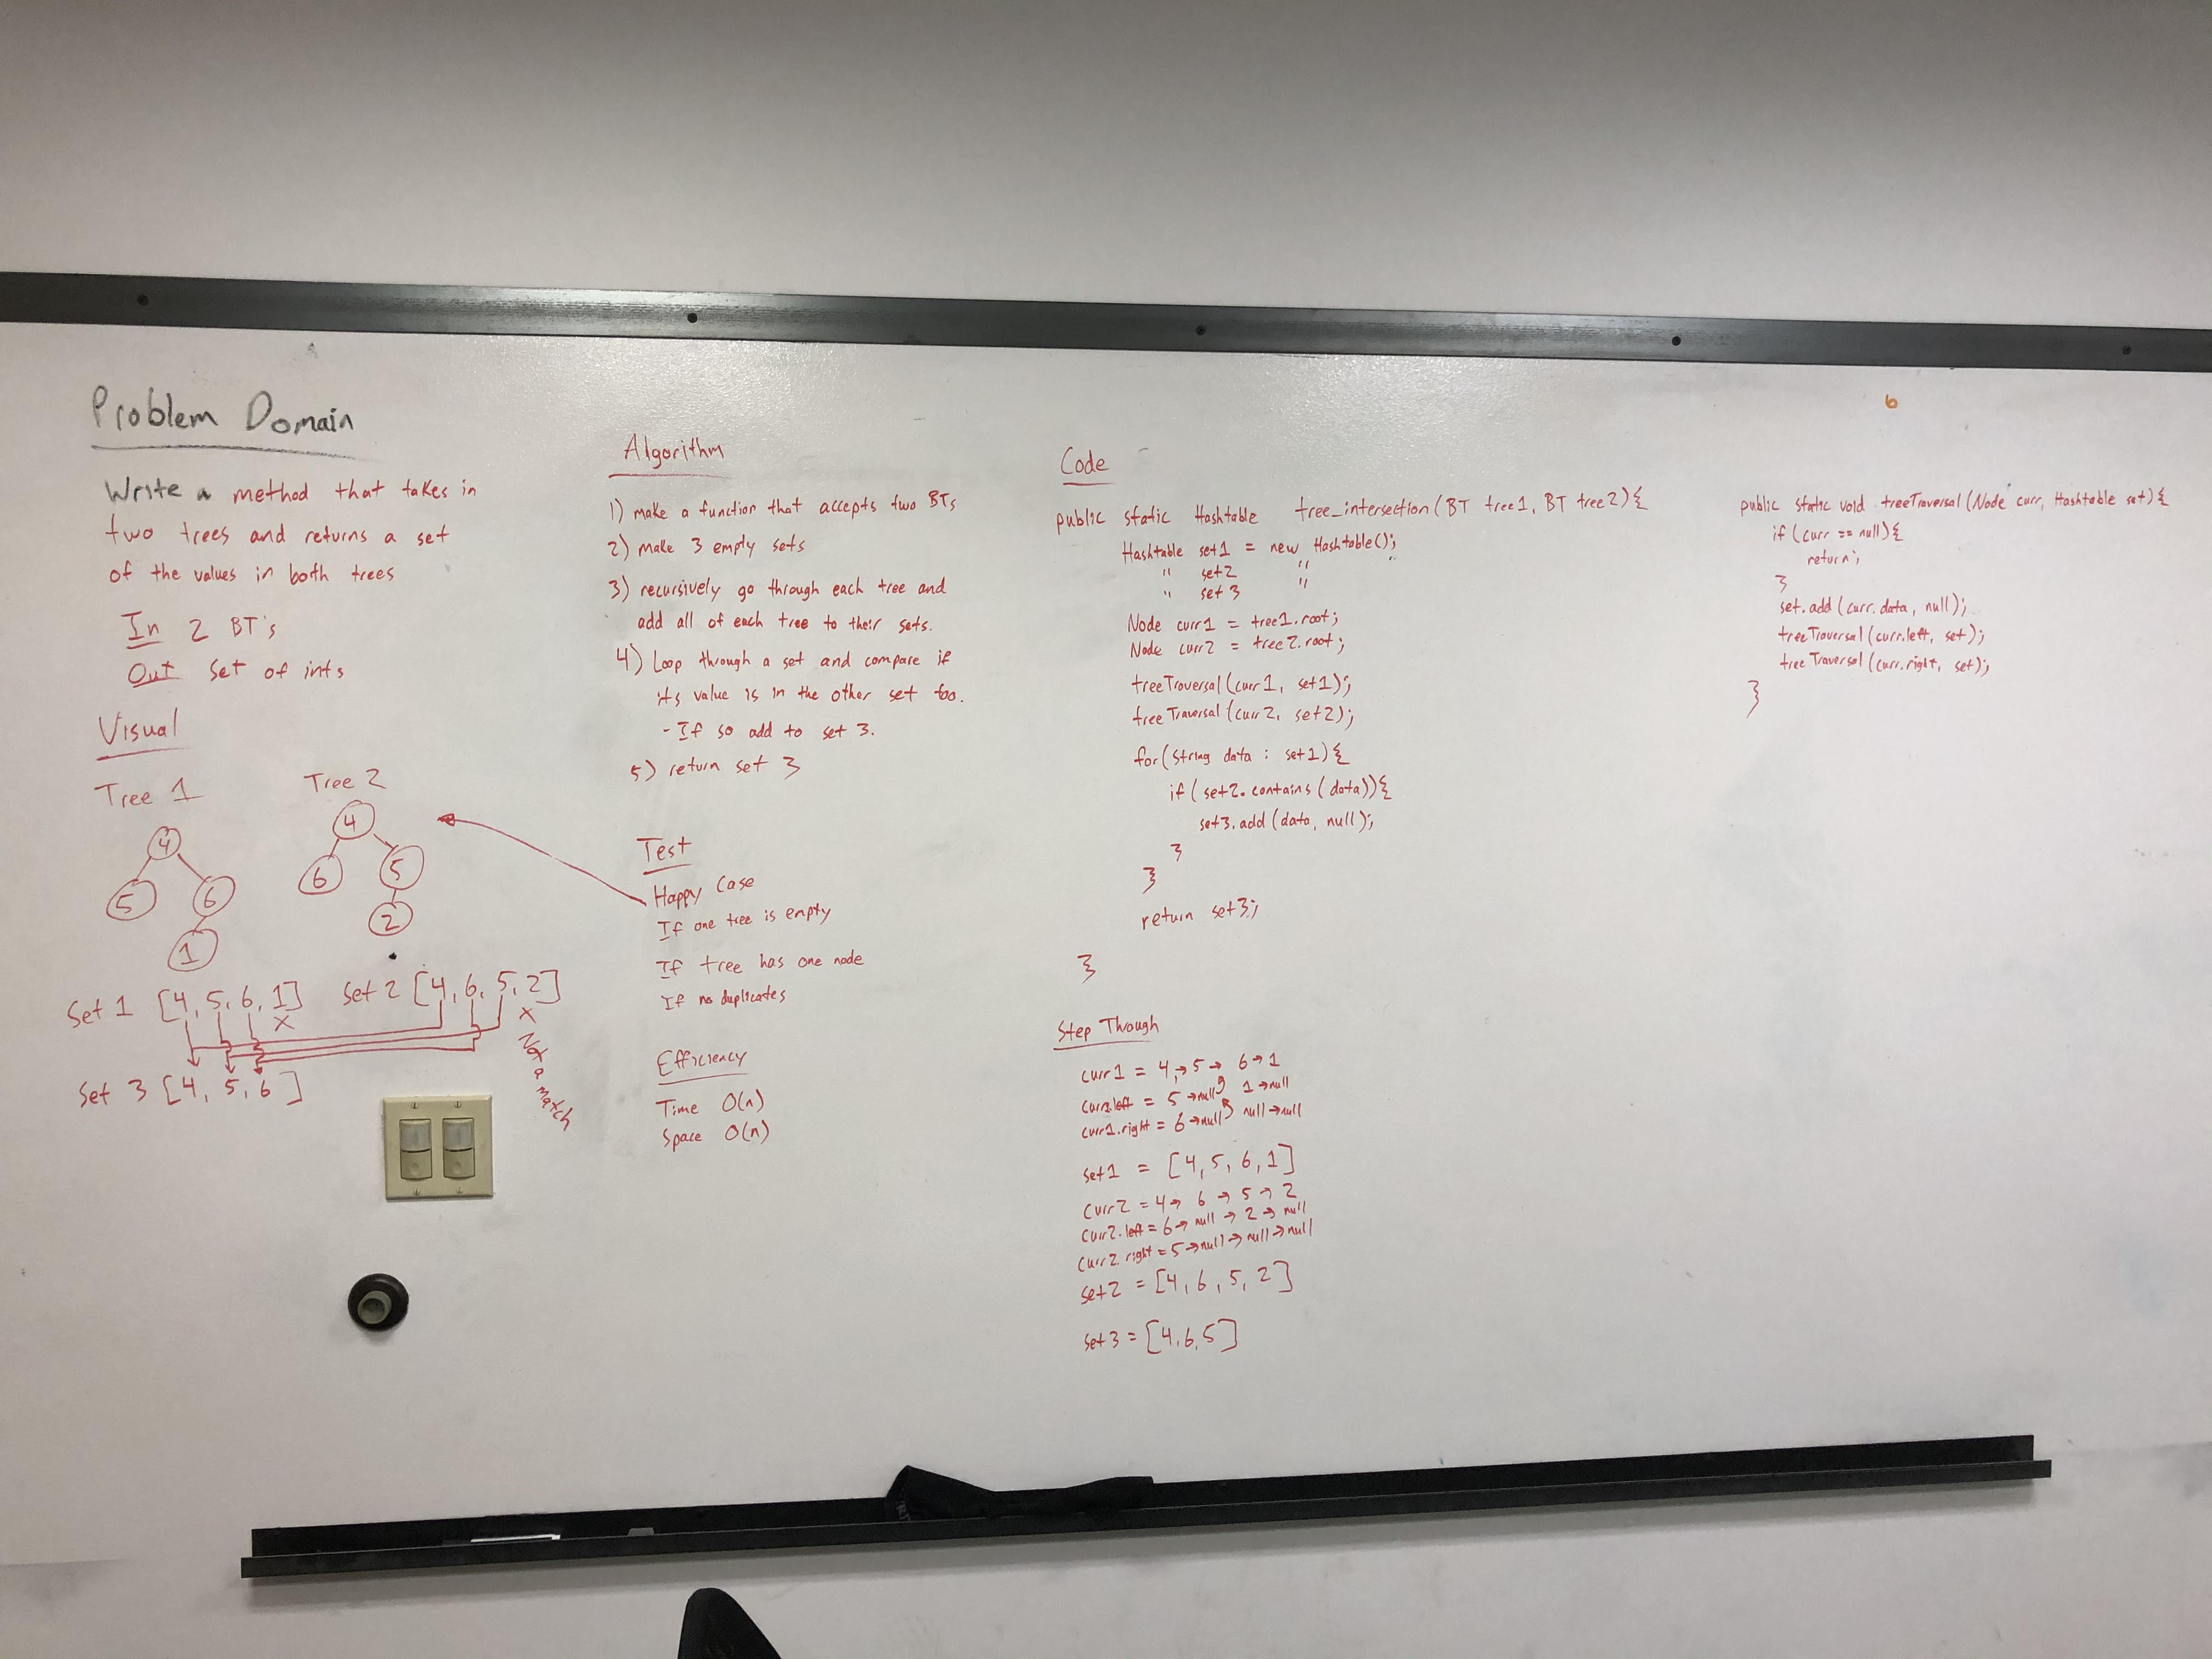 Problem Domain
Write a method that takes in
two trees and returns a set
of the values in both trees
In 2 BT's
Out set of ints
Visual
Tree 1
4
5 6
1
Tree 2
4
6 5
2
Set 1 [4, 5, 6, 1] Set 2 [4, 6, 5, 2]
X X
Not a match
Set 3 [4, 5, 6 ]
Algorithm
1) make a function that accepts two BTs
2) make 3 empty sets
3) recursively go through each tree and
add all of each tree to their sets.
4) Loop through a set and compare if
its value is in the other set too.
- If so add to set 3.
5) return set 3
Test
Happy Case
If one tree is empty
If tree has one node
If no duplicates
Efficiency
Time O(n)
Space O(n)
Code
public static Hashtable tree_intersection(BT tree1, BT tree2){
Hashtable set1 = new Hashtable();
" set2 "
" set 3 "
Node curr1 = tree1.root;
Node curr2 = tree2.root;
treeTraversal(curr1, set1);
treeTraversal(curr2, set2);
for(String data : set1){
if(set2.contains(data)){
set3.add(data, null);
}
}
return set3;
}
Step Though
curr1 = 4 → 5 → 6 → 1
curr1.left = 5 → null → 1 → null
curr1.right = 6 → null → null → null
set1 = [4, 5, 6, 1]
curr2 = 4 → 6 → 5 → 2
curr2.left = 6 → null → 2 → null
curr2.right = 5 → null → null → null
set2 = [4, 6, 5, 2]
set3 = [4, 6, 5]
6
public static void treeTraversal(Node curr, Hashtable set){
if(curr == null){
return;
}
set.add(curr.data, null);
treeTraversal(curr.left, set);
treeTraversal(curr.right, set);
}